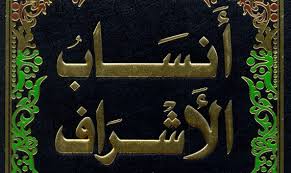 أنسَابُ
الأشْرَاف